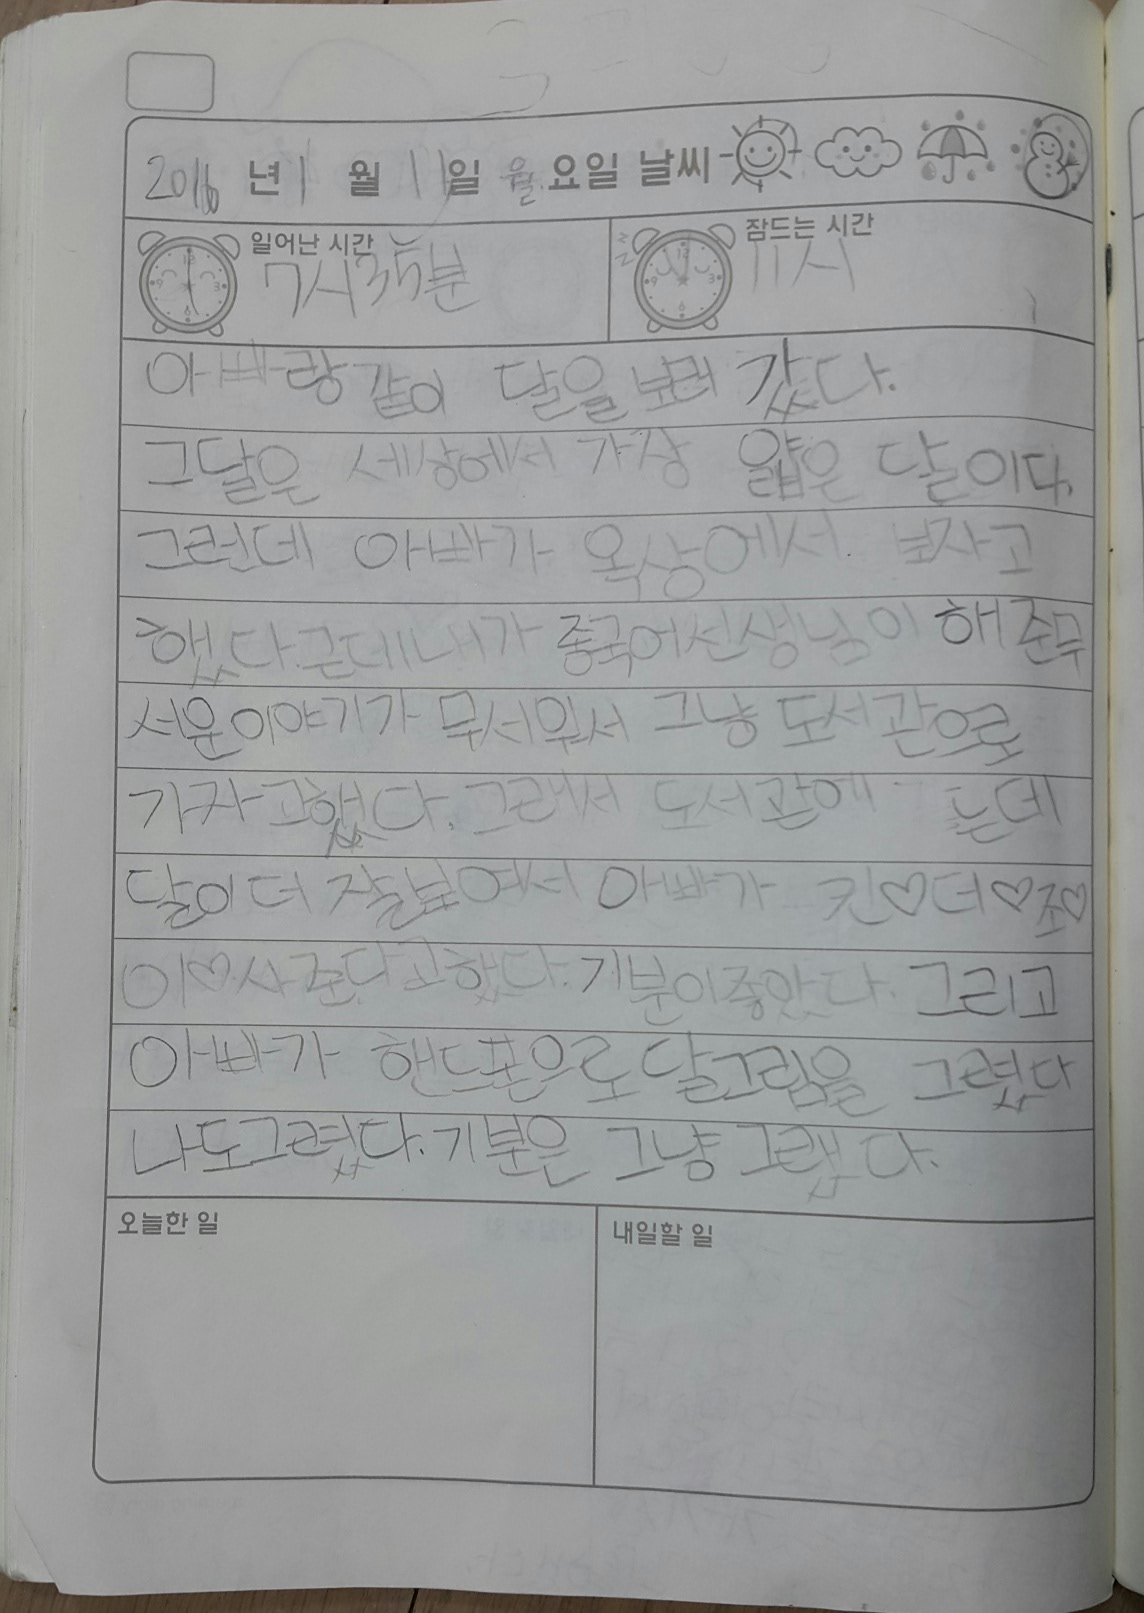 2016 년 1 월 11 일 월 요일 날씨
일어난 시간 7시35분
잠드는 시간 11시
아빠랑 같이 달을 보러 갔다.
그달은 세상에서 가장 얇은 달이다.
그런데 아빠가 옥상에서 보자고
했다. 근데 내가 중국어선생님이 해준무
서운이야기가 무서워서 그냥 도서관으로
가자고했다. 그래서 도서관에 는데
달이 더 잘보여서 아빠가 킨♡더♡조♡
이♡사준다고했다. 기분이좋았다. 그리고
아빠가 핸드폰으로 달그림을 그렸다
나도그렸다. 기분은 그냥 그랬다.
오늘한 일
내일할 일